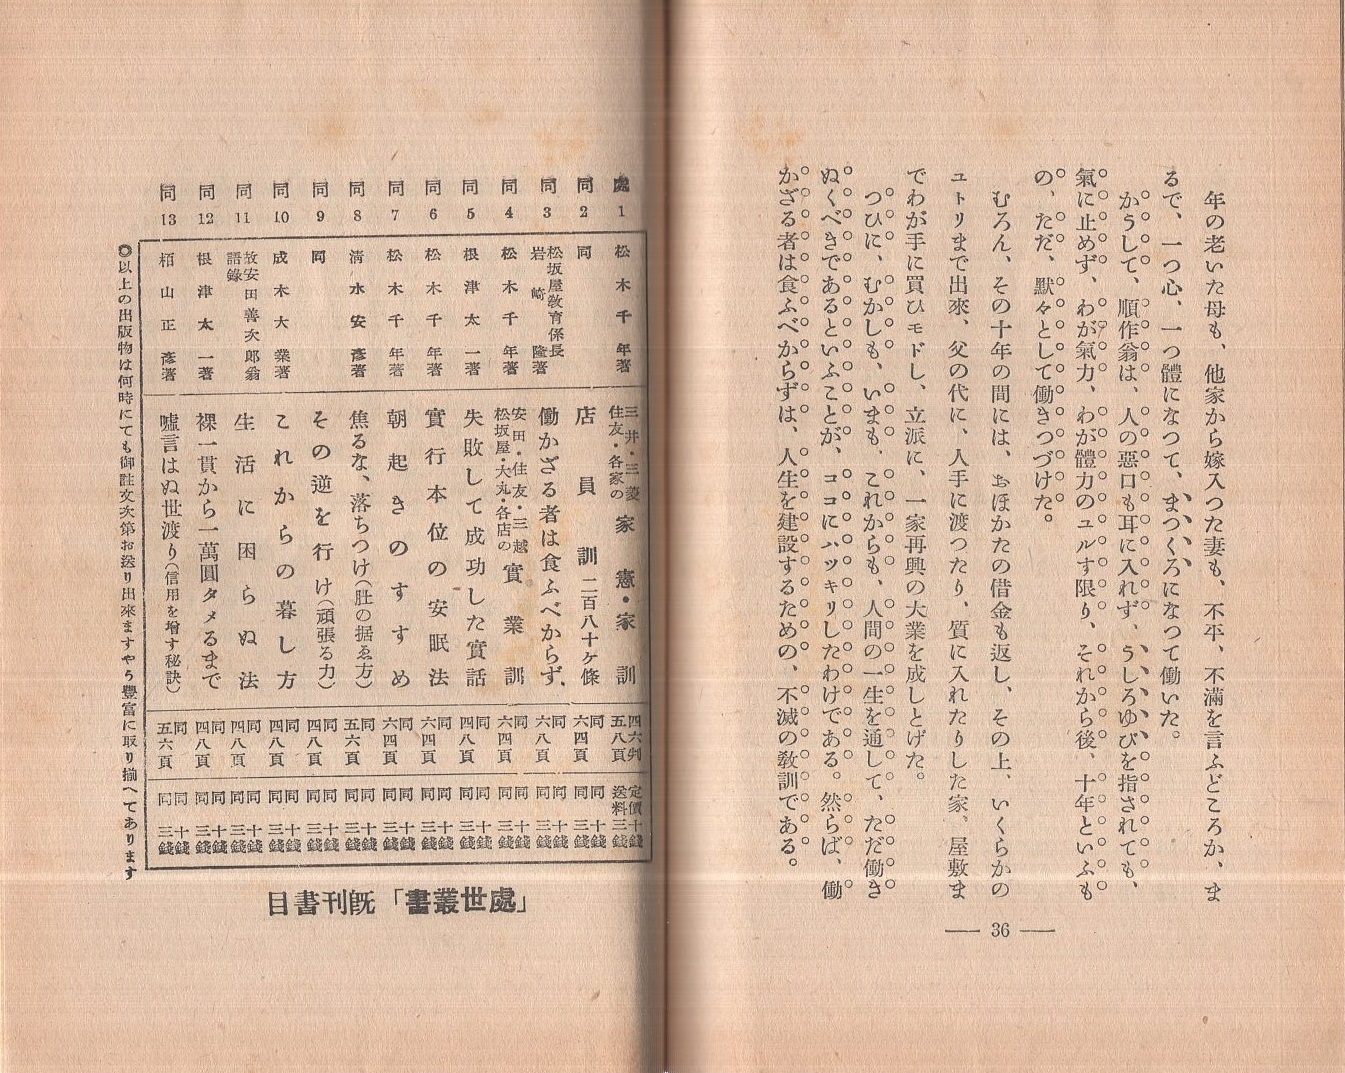 年の老いた母も、他家から嫁入つた妻も、不平、不滿を言ふどころか、ま
るで、一つ心、一つ體になつて、まつくろになつて働いた。
かうして、順作翁は、人の惡口も耳に入れず、うしろゆびを指されても、
氣に止めず、わが氣力、わが體力のユルす限り、それから後、十年といふも
の、ただ、默々として働きつづけた。
むろん、その十年の間には、おほかたの借金も返し、その上、いくらかの
ユトリまで出來、父の代に、人手に渡つたり、質に入れたりした家、屋敷ま
でわが手に買ひモドし、立派に、一家再興の大業を成しとげた。
つひに、むかしも、いまも、これからも、人間の一生を通して、ただ働き
ぬくべきであるといふことが、ココにハツキリしたわけである。然らば、働
かざる者は食ふべからずは、人生を建設するための、不滅の敎訓である。
― 36 ―
處1 松木千年著 三井・三菱住友・各家の 家憲・家訓 四六判五八頁 定價十錢送料三錢
同2 同 店員訓二百八十ケ條 同六四頁 同十錢同三錢
同3 松坂屋敎育係長岩崎隆著 働かざる者は食ふべからず、 同六八頁 同十錢同三錢
同4 松木千年著 安田・住友・三越松坂屋・大丸・各店の 實業訓 同六四頁 同十錢同三錢
同5 根津太一著 失敗して成功した實話 同四八頁 同十錢同三錢
同6 松木千年著 實行本位の安眠法 同六四頁 同十錢同三錢
同7 松木千年著 朝起きのすすめ 同六四頁 同十錢同三錢
同8 淸水安彥著 焦るな、落ちつけ(肚の据ゑ方) 同五六頁 同十錢同三錢
同9 同 その逆を行け(頑張る力) 同四八頁 同十錢同三錢
同10 成木大業著 これからの暮し方 同四八頁 同十錢同三錢
同11 故安田善次郎翁語錄 生活に困らぬ法 同四八頁 同十錢同三錢
同12 根津太一著 裸一貫から一萬圓タメるまで 同四八頁 同十錢同三錢
同13 栢山正彥著 嘘言はぬ世渡り(信用を增す秘訣) 同五六頁 同十錢同三錢
◎以上の出版物は何時にても御註文次第お送り出來ますやう豐富に取り揃へてあります
目書刊旣「書叢世處」